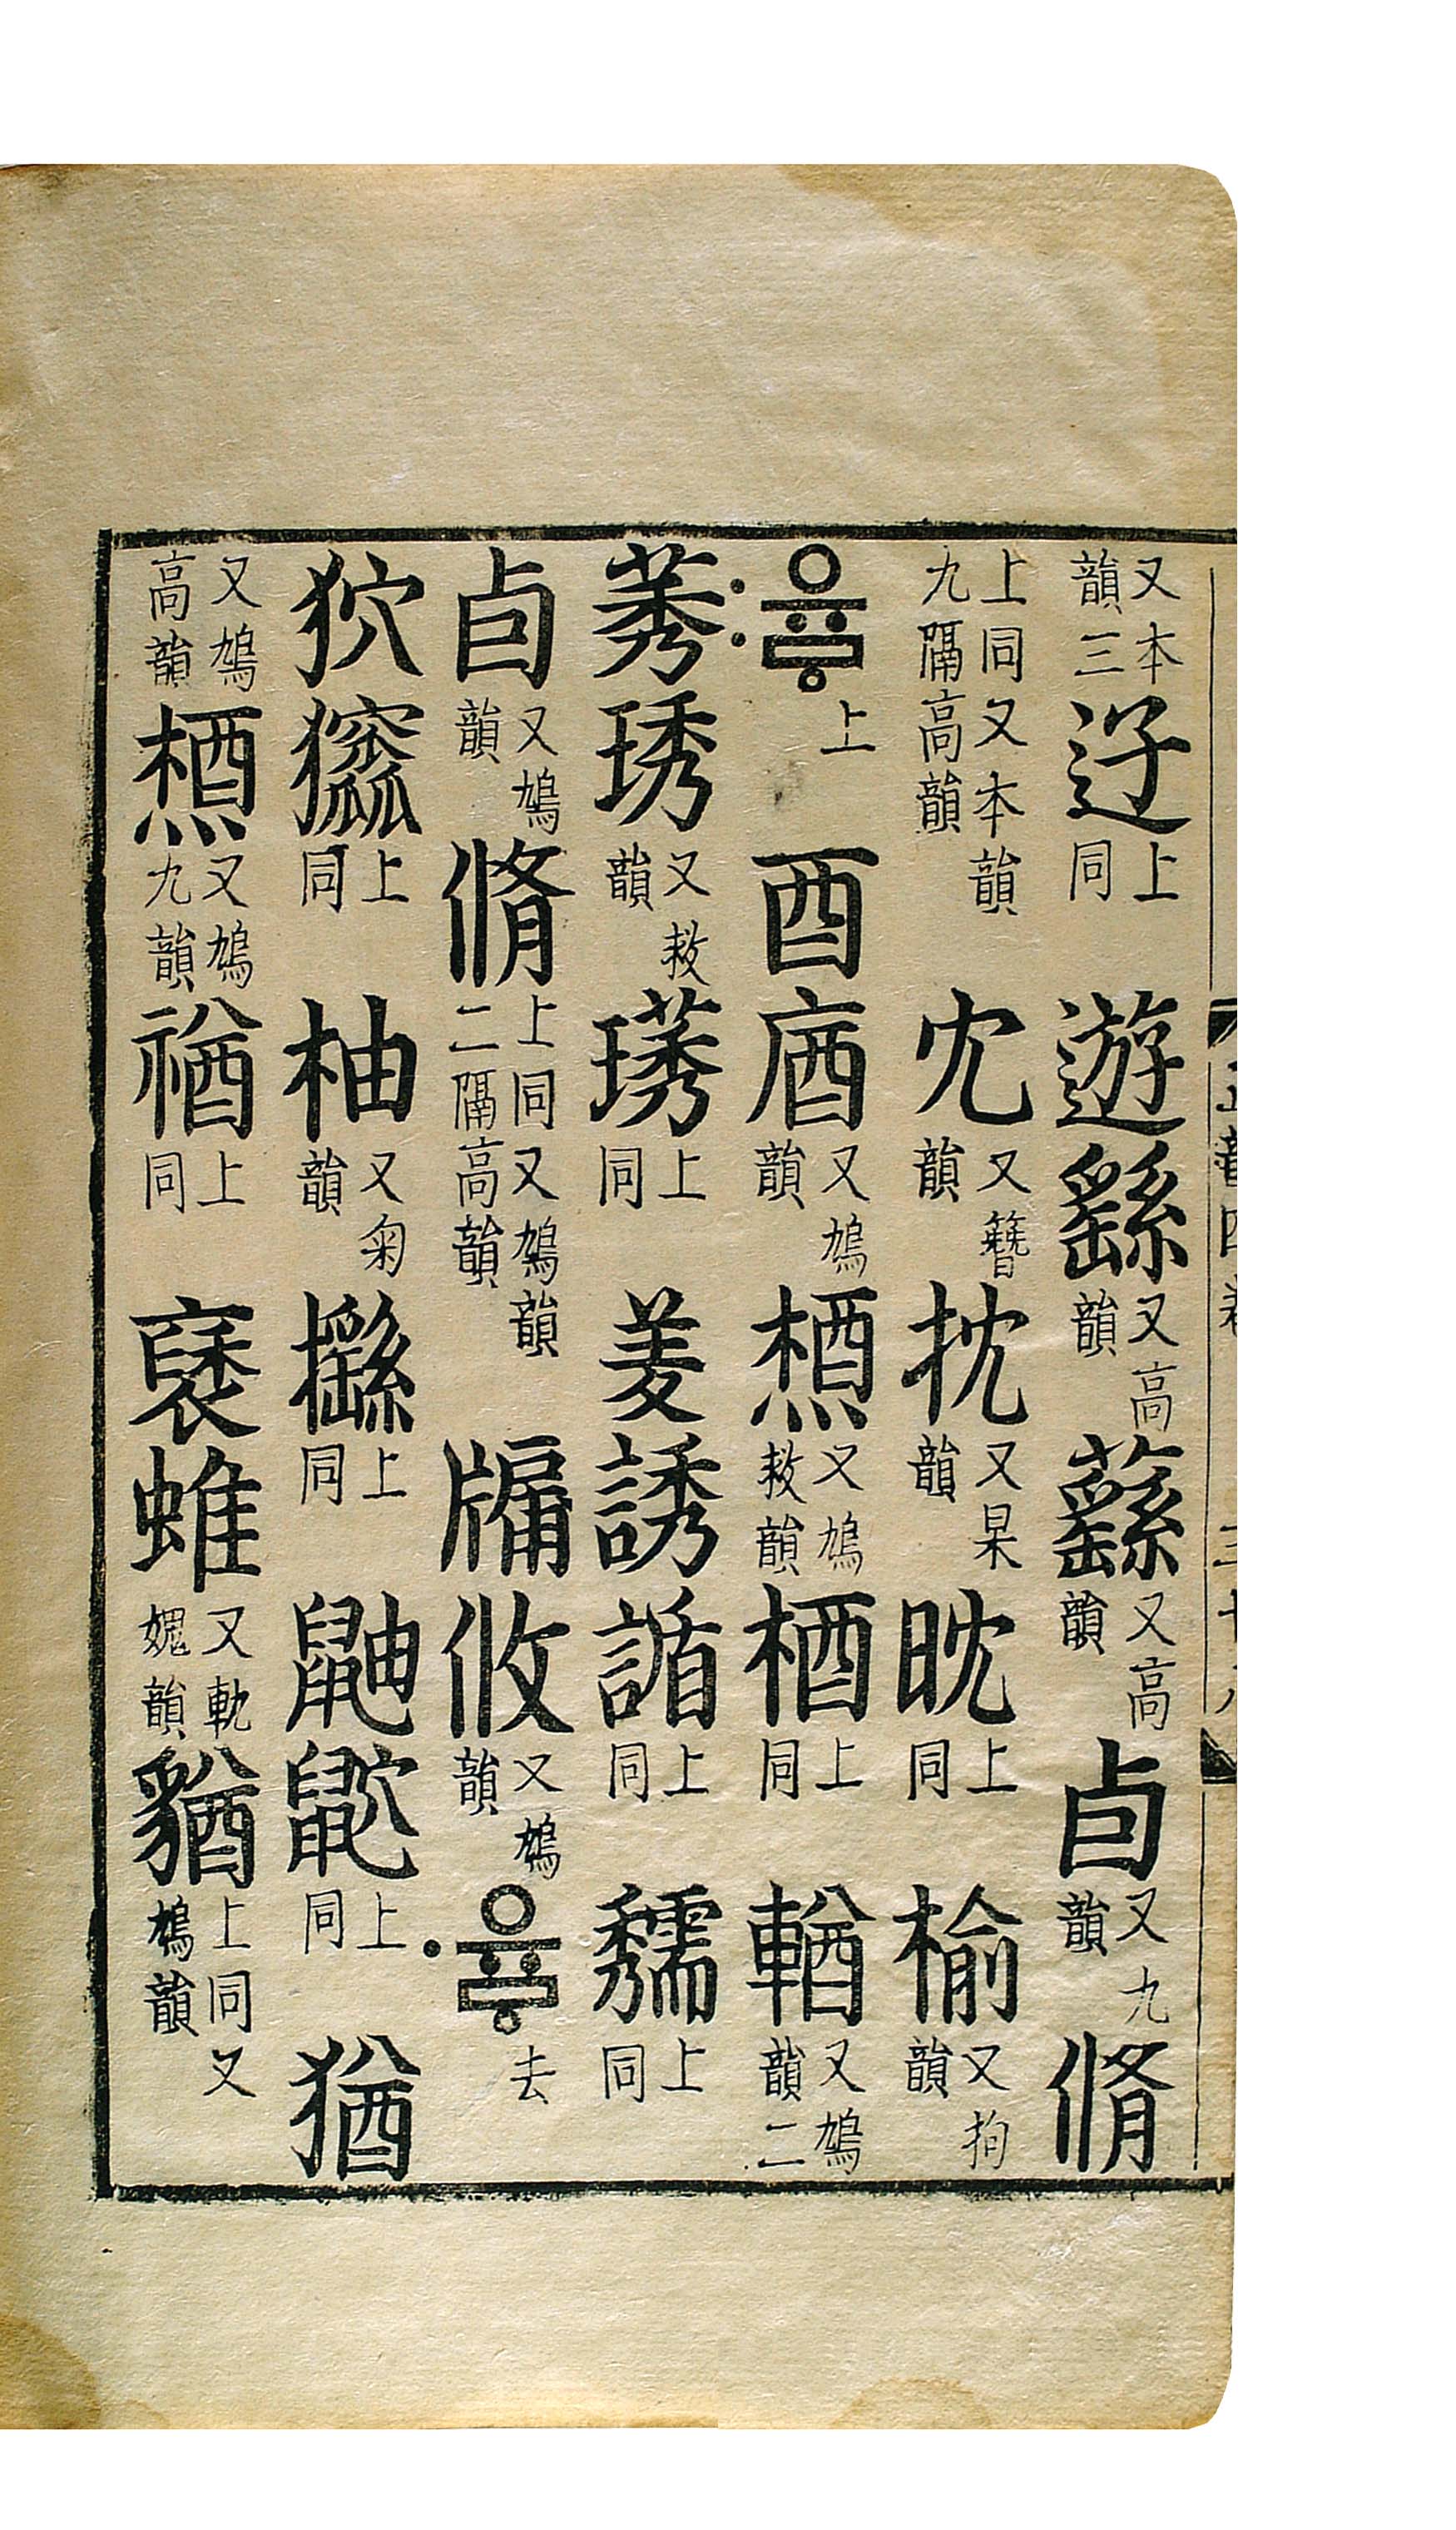 又本韻三 上同 遊繇又高韻 蘨又高韻 卣又九韻 脩
上同又本韻九隔高韻 冘又簪韻 抌又杲韻 上同 榆又拘韻
유ᇢ〯上 酉庮又鳩韻 槱又鳩救韻 梄上同 輶又鳩韻二
莠琇又救韻 璓上同 羑誘 上同 上同
卣又鳩韻 脩上同又鳩韻二隔高韻 牖攸又鳩韻 유ᇢ〮去
狖 上同 柚又菊韻 櫾上同 鼬 上同 猶
又鳩高韻 槱又鳩九韻 禉上同 褎蜼又軌媿韻 上同又鳩韻